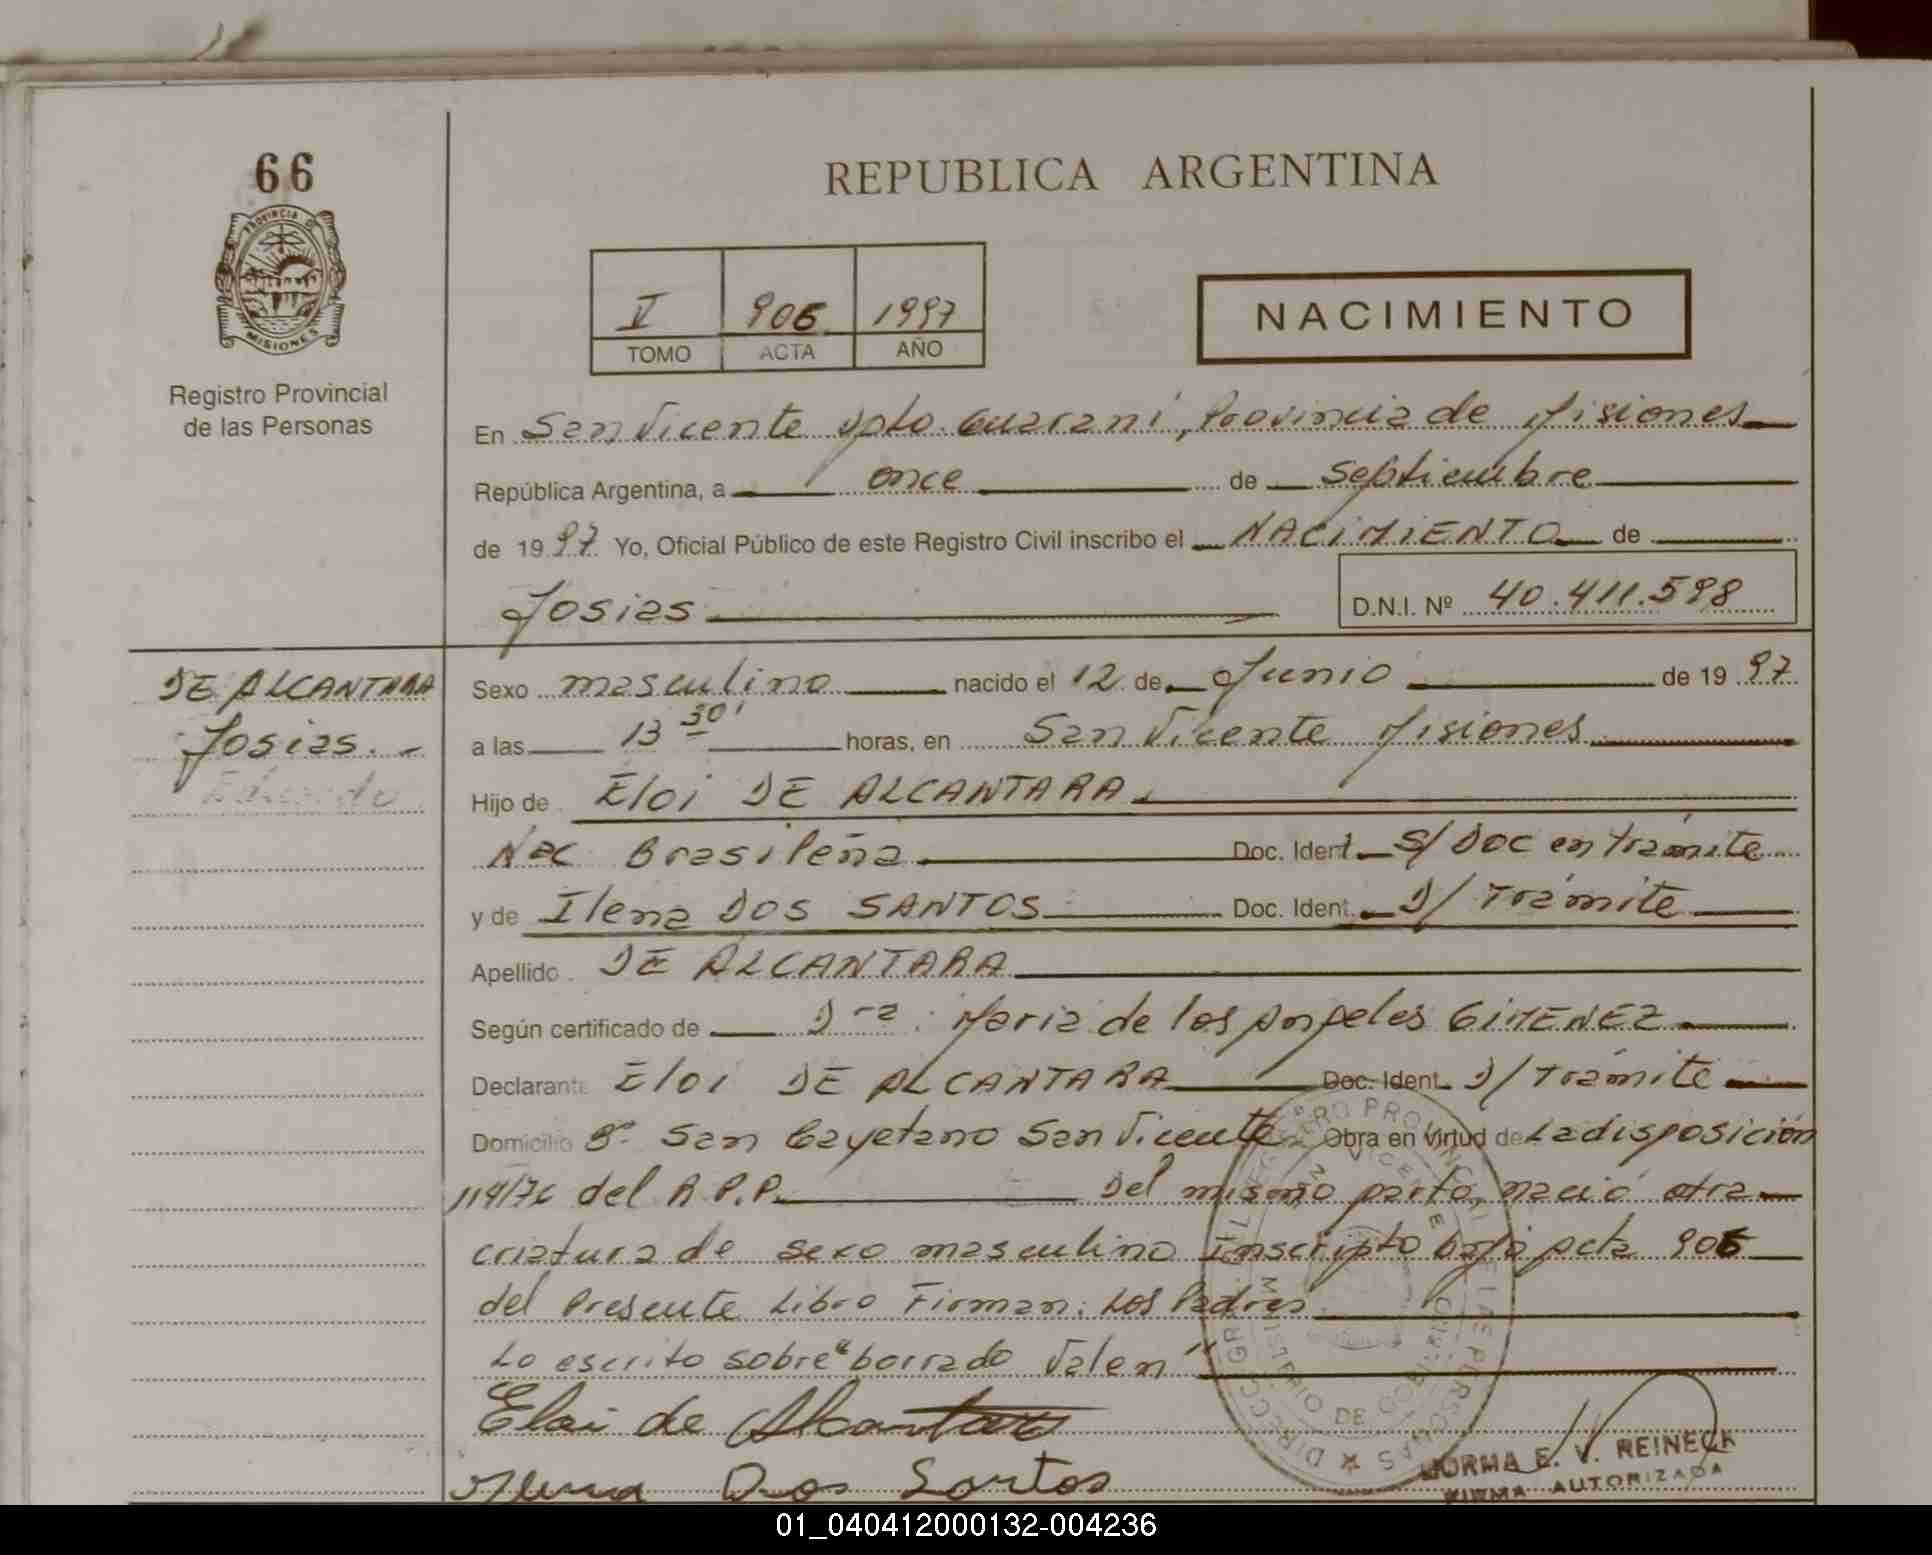 66
PROVINCIA DE
MISIONES
Registro Provincial
de las Personas
REPUBLICA ARGENTINA
I 906 1997
TOMO ACTA AÑO
NACIMIENTO
En San Vicente Dpto. Guaraní, Provincia de Misiones
República Argentina, a once de Septiembre
de 1997 Yo, Oficial Público de este Registro Civil inscribo el NACIMIENTO de
Josias D.N.I. Nº 40.411.598
DE ALCANTARA
Josias.
Sexo masculino nacido el 12 de Junio de 1997
a las 13 30' horas, en San Vicente Misiones
Hijo de Eloi DE ALCANTARA
Nac Brasileña Doc. Ident. S/ Doc en trámite
y de Ilena DOS SANTOS Doc. Ident. D/ Trámite
Apellido DE ALCANTARA
Según certificado de Dra. Maria de los Angeles GIMENEZ
Declarante Eloi DE ALCANTARA Doc. Ident. D/ Trámite
Domicilio Bº San Cayetano San Vicente Obra en virtud de La disposición
114/76 del R.P.P. Del mismo parto, nació otra
criatura de sexo masculino inscripto bajo acta 905
del Presente Libro Firman: Los Padres
Lo escrito sobre "borrado Valen"
Eloi de Alcantara
Ilena Dos Santos
NORMA E. V. REINECK
FIRMA AUTORIZADA
01_040412000132-004236